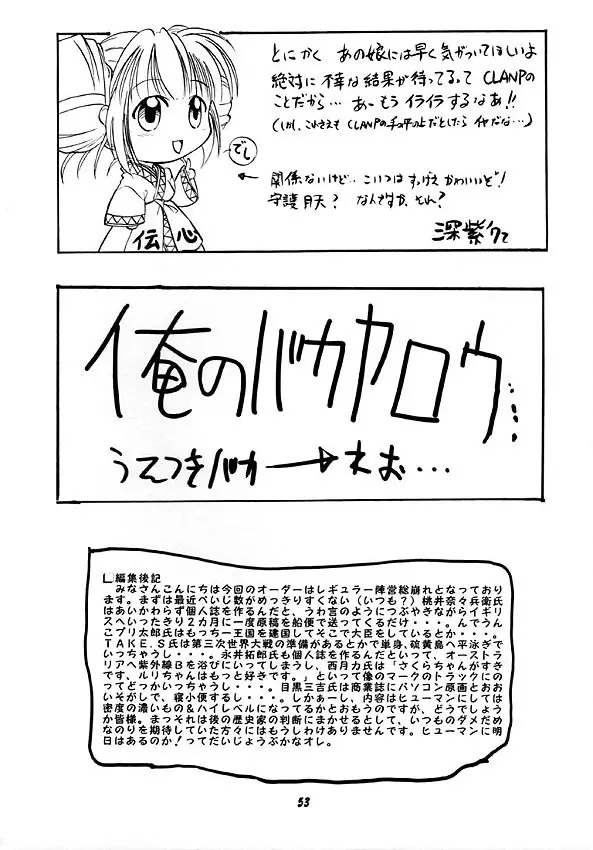 とにかく あの娘には早く気がついてほしいよ
絶対に不幸な結果が待ってるって CLAMPの
ことだから… あーもう イライラするなあ!!
(しかし、これさえも CLAMPの手の平の上だとしたら イヤだな…)
でし
← 関係ないけど… こいつは すっげえ かわいいぞ!
守護月天? なんですか、それ?
伝 心
深紫クて
俺のバカヤロウ…
うえつきバカ → ネお…
編集後記
みなさんこんにちは今回のオーダーはレギュラー陣営総崩れとなっており
ます。まずは最近ページ数がめっきりすくない(いつも?)桃井奈々兵衛氏
はあいかわらず個人誌を作るんだと、うわ言のようにつぶやきながらイギリ
スへいったきり2カ月に一度原稿を船便で送ってくるだけ・・・。んでうん
こプリ太郎氏はもっちー王国を建国してそこで大臣をしているとか・・・。
TAKE.S氏は第三次世界大戦の準備があるとかで単身、硫黄島へ平泳ぎで
いっちゃうし・・・。永井拓郎氏も個人誌を作るんだといって、オーストラ
リアへ紫外線Bを浴びにいってしまうし、西月力氏は「さくらちゃんがすき
です、ルリちゃんはもっと好きです。」といって像のマークのトラックにの
ってどっかいっちゃうし・・・。目黒三吉氏は商業誌にパソコン原画とおお
いそがしで、寝小便するし・・・。しかぁーし、内容はヒューマンにしては
密度の濃いもの&ハイレベルになってるかとおもうのですが、どうでしょう
か皆様。まっそれは後の歴史家の判断にまかせるとして、いつものダメだめ
なのりを期待していた方々にはもうしわけありません。ヒューマンに明
日はあるのか!ってだいじょうぶかなオレ。
53